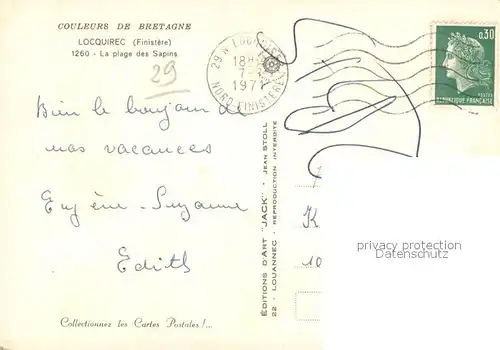 COULEURS DE BRETAGNE
LOCQUIREC (Finistère)
1260 - La plage des Sapins
29
29 N LOCQUIREC
18H
7-
1971
NORD FINISTERE
0,30
POSTES
REPUBLIQUE FRANÇAISE
Bien le bonjour de
nos vacances
Eugène - Suzanne
Edith
EDITIONS D'ART "JACK" - JEAN STOLL
22 - LOUANNEC - REPRODUCTION INTERDITE
K
10
privacy protection
Datenschutz
Collectionnez les Cartes Postales !...